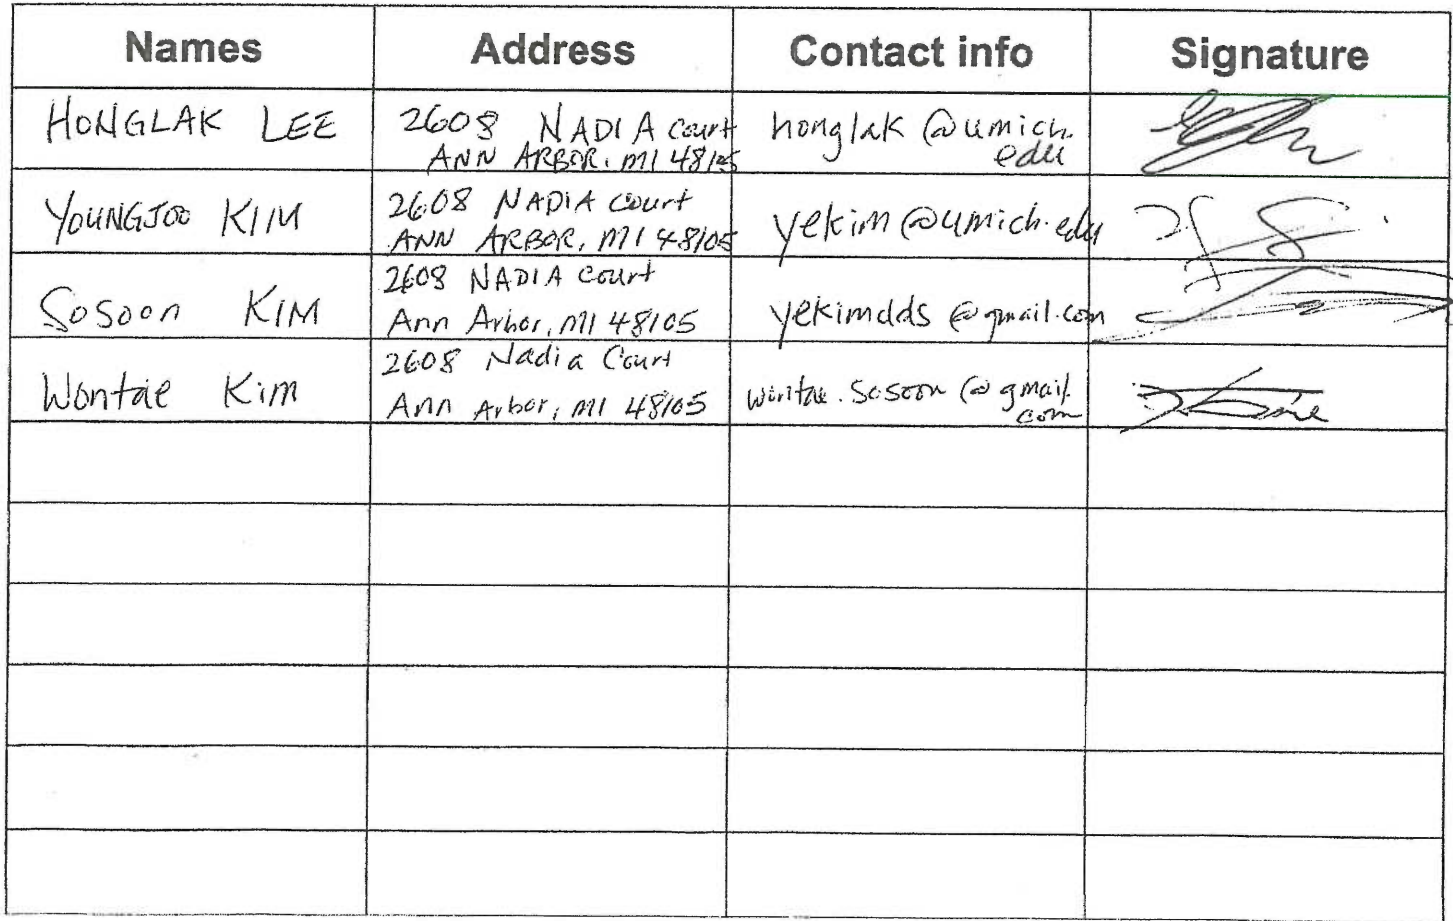 Names Address Contact info Signature
HONGLAK LEE
2608 NADIA court
ANN ARBOR. MI 48105
honglak @umich.
edu
YOUNGJOO KIM
2608 NADIA court
ANN ARBOR, MI 48105
yekim @umich.edu
SoSoon KIM
2608 NADIA court
Ann Arbor, MI 48105
yekimdds @gmail.com
Wontae Kim
2608 Nadia Court
Ann Arbor, MI 48105
wontae.sosoon @gmail.
com